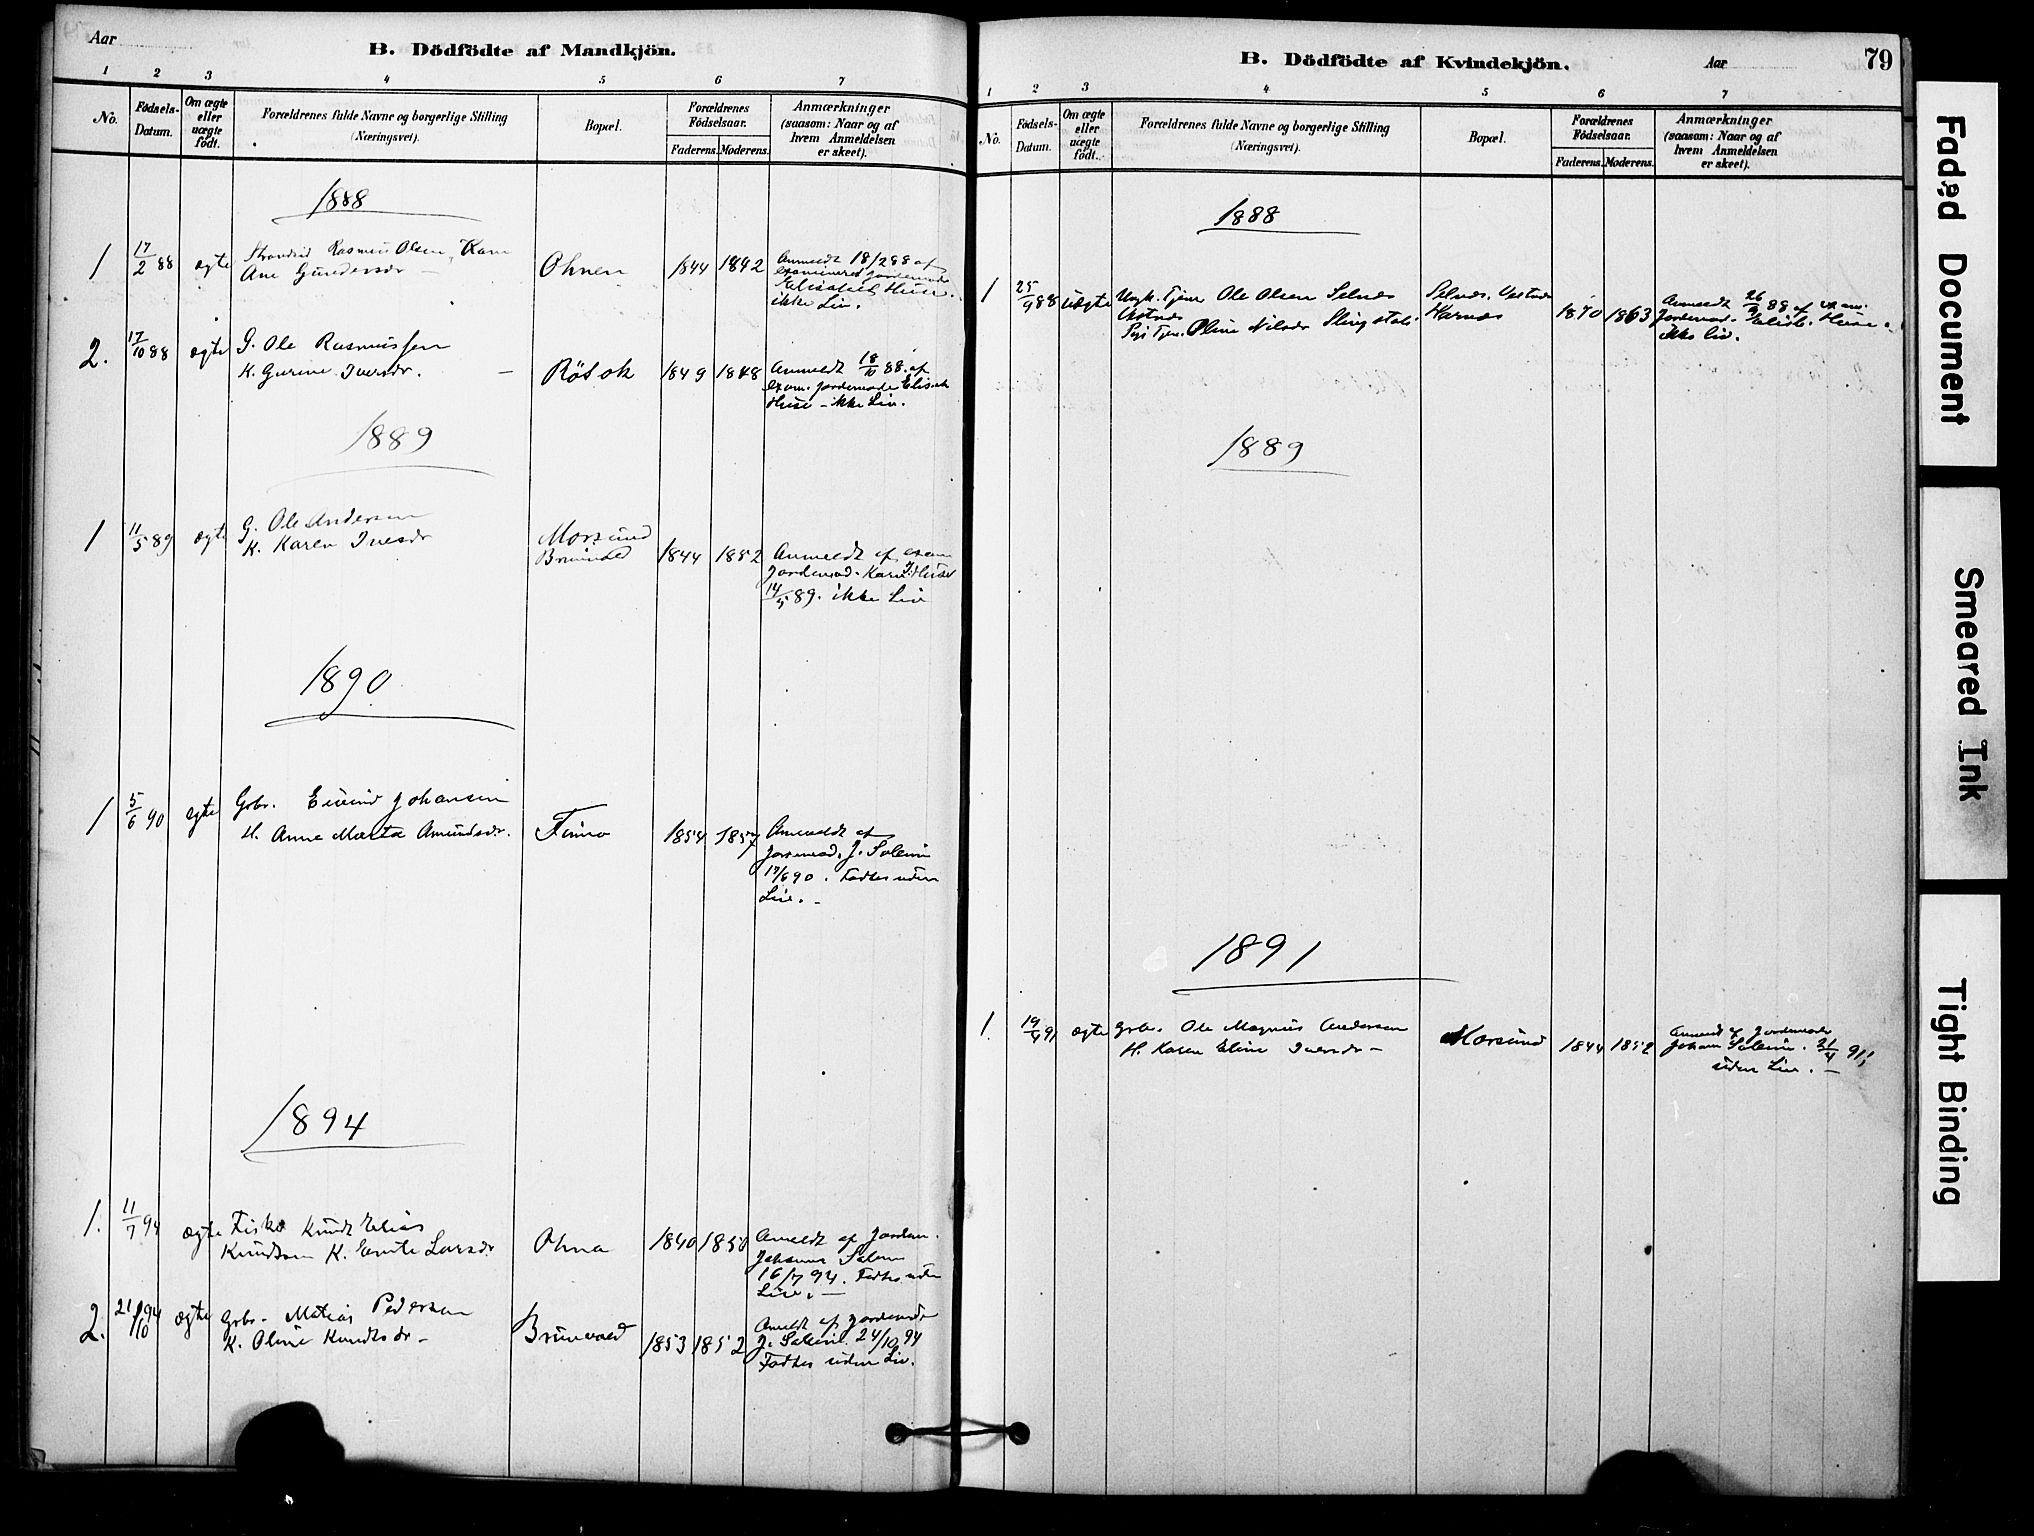 Aar
B. Dödfödte af Mandkjön.
1 2 3 4 5 6 7
No.
Födsels-
Datum.
Om ægte
eller
uægte
födt.
Forældrenes fulde Navne og borgerlige Stilling
(Næringsvei).
Bopæl.
Forældrenes
Födselsaar.
Faderens. Moderens.
Anmærkninger
(saasom: Naar og af
hvem Anmeldelsen
er skeet).
1888
1 17/2 88 ægte Strandsid Rasmus Olsen, Kone
Ane Gundersdr —
Ohnen 1844 1842
Anmeldt 18/2 88 af
examineret Jordemoder
Elisabet Huse.
ikke Liv.
2. 17/10 88 ægte G. Ole Rasmussen
K. Gurine Iversdr. —
Røsok 1849 1848
Anmeldt 18/10 88. af
exam. Jordemode Elisab
Huse - ikke Liv.
1889
1 11/5 89 ægte G. Ole Andersen
K. Karen Iversdr
Morsund
Brunvold
1844 1852
Anmeldt af exam
Jordemod. Karen Huse
14/5 89. ikke Liv
1890
1 5/6 90 ægte Gbr. Eivind Johansen
H. Anne Marta Amundsdr.
Finno 1854 1857
Anmeldt af
Jordemod. J. Solem
17/6 90. Fødtes uden
Liv. -
1894
1. 11/7 94 ægte Fisker Knudt Elias
Knudtsen K. Larsdr
Ohna 1840 1850
Anmeldt af Jordem.
Johanna Solem
16/7 94. Fødtes uden
Liv. —
2. 21/10 94 ægte Gbr. Matias Pedersen
K. Oline Knudtsdr -
Brunvold 1853 1852
Anmeldt af Jordemoder
J. Solem 24/10 94
Fødtes uden Liv.
B. Dödfödte af Kvindekjön.
Aar
79
1 2 3 4 5 6 7
No.
Födsels-
Datum.
Om ægte
eller
uægte
födt.
Forældrenes fulde Navne og borgerlige Stilling
(Næringsvei).
Bopæl.
Forældrenes
Födselsaar.
Faderens. Moderens.
Anmærkninger
(saasom: Naar og af
hvem Anmeldelsen
er skeet).
1888
1 25/9 88 uægte Ungk. Tjener Ole Olsen Selnes
Vestnes
Pige Tjen. Oline Nilsdr
Selnes, Vestnes
Harnes
1870 1863
Anmeldt 26/9 88 af exam.
Jordemod. Elisb. Huse.
ikke Liv.
1889
1891
1. 19/4 91 ægte Gbr. Ole Magnus Andersen
H. Karen Eline Iversdr —
Morsund 1844 1852
Anmeldt af Jordemoder
Johan Solem. 21/4 91,
uden Liv. —
Faded Document
Smeared Ink
Tight Binding